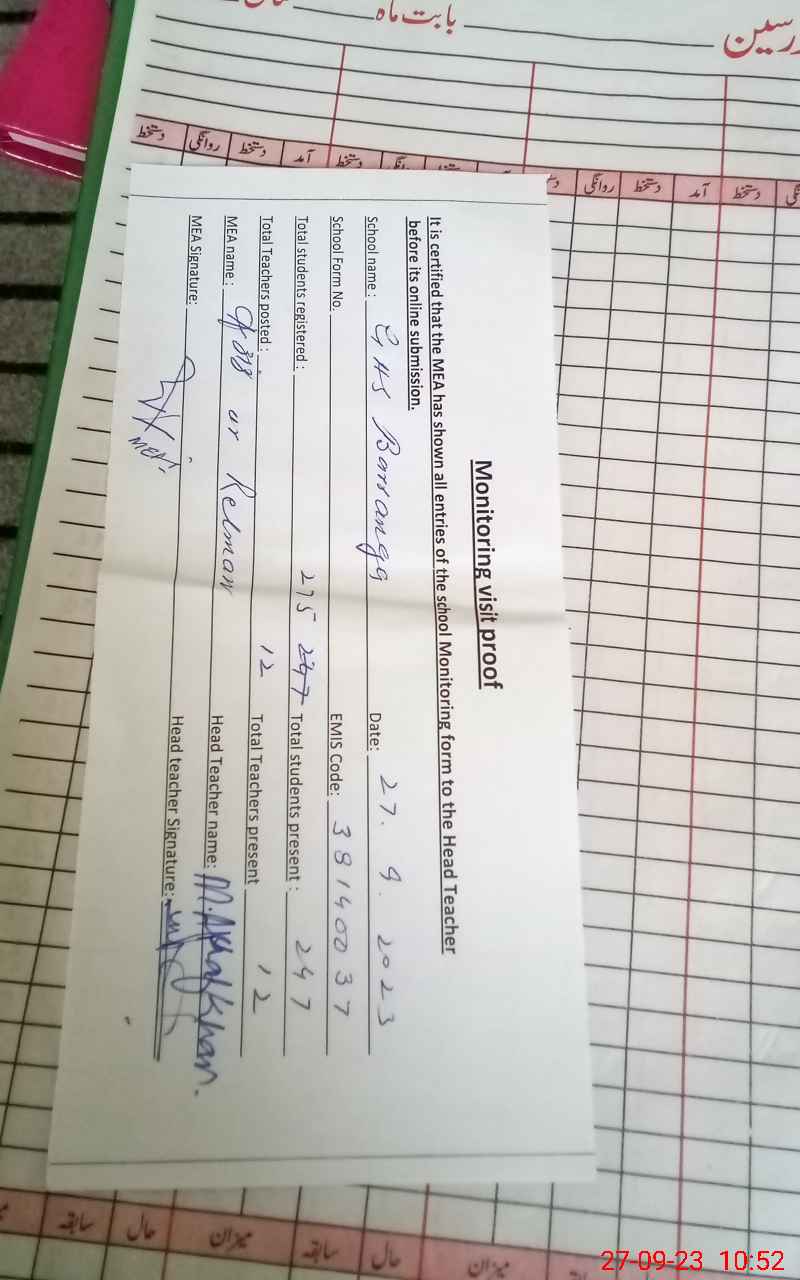 بابت ماہ
دستخط روانگی دستخط آمد دستخط روانگی
روانگی دستخط آمد دستخط
Monitoring visit proof
It is certified that the MEA has shown all entries of the school Monitoring form to the Head Teacher
before its online submission.
School name: GHS Barsanga Date: 27. 9. 2023
School Form No. EMIS Code: 38140037
Total students registered: 275 247 Total students present: 247
Total Teachers posted: 12 Total Teachers present 12
MEA name: ur Rehman Head Teacher name: M. Khan.
MEA Signature: MEA Head teacher Signature:
سابقہ حال میزان سابقہ حال میزان
27-09-23 10:52